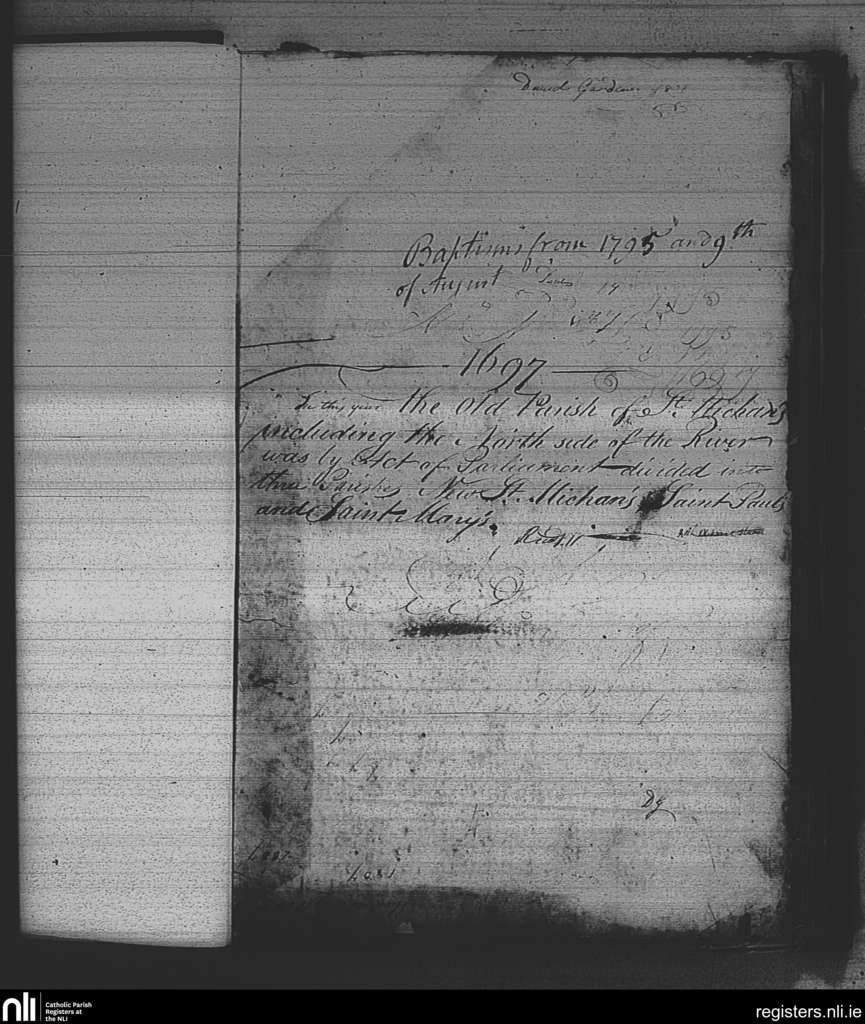 David Gardiner
Baptisms from 1795 and 9th
of August
1697
In this year the Old Parish of St. Michans
including the North side of the River
was by Act of Parliament divided into
three Parishes New St. Michan's Saint Pauls
and Saint Mary's.
nli
Catholic Parish
Registers at
the NLI
registers.nli.ie